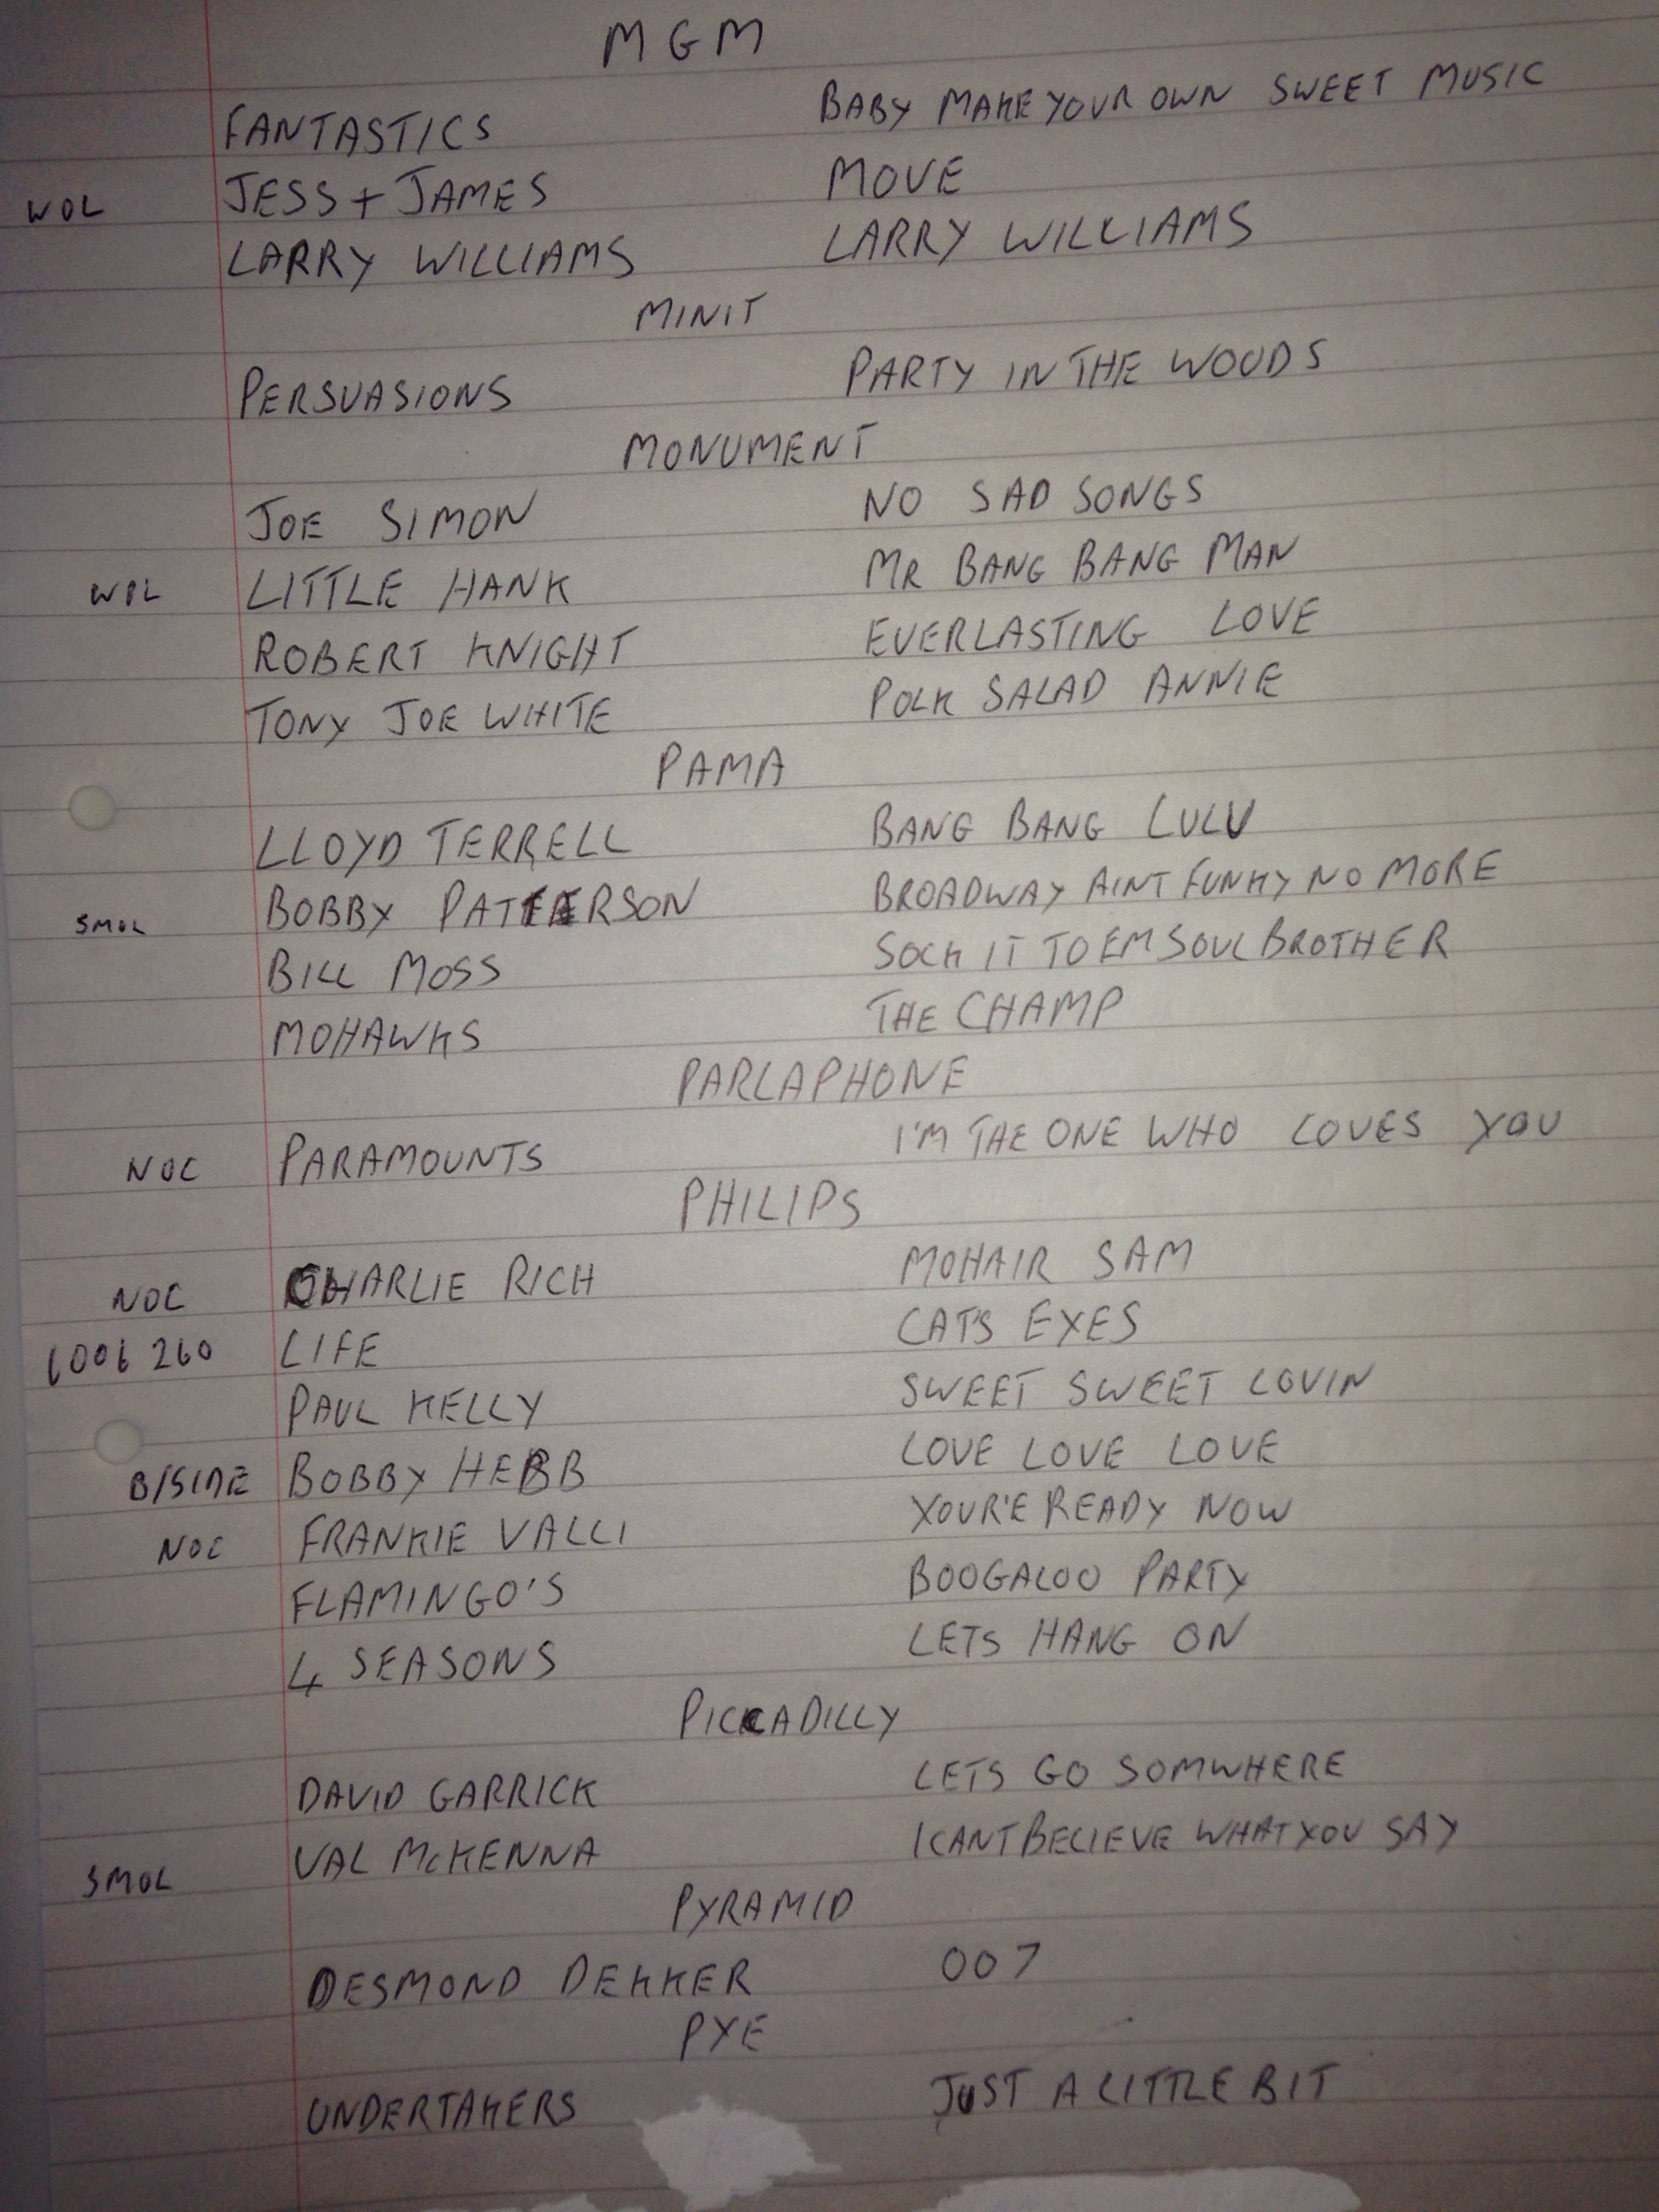 MGM
FANTASTICS BABY MAKE YOUR OWN SWEET MUSIC
WOL JESS + JAMES MOVE
LARRY WILLIAMS LARRY WILLIAMS
MINIT
PERSUASIONS PARTY IN THE WOODS
MONUMENT
JOE SIMON NO SAD SONGS
WOL LITTLE HANK MR BANG BANG MAN
ROBERT KNIGHT EVERLASTING LOVE
TONY JOE WHITE POLK SALAD ANNIE
PAMA
LLOYD TERRELL BANG BANG LULU
SMOL BOBBY PATTERSON BROADWAY AINT FUNKY NO MORE
BILL MOSS SOCK IT TO EM SOUL BROTHER
MOHAWKS THE CHAMP
PARLAPHONE
NOC PARAMOUNTS I'M THE ONE WHO LOVES YOU
PHILIPS
NOC CHARLIE RICH MOHAIR SAM
6006 260 LIFE CATS EYES
PAUL KELLY SWEET SWEET LOVIN
B/SIDE BOBBY HEBB LOVE LOVE LOVE
NOC FRANKIE VALLI YOUR'E READY NOW
FLAMINGO'S BOOGALOO PARTY
4 SEASONS LETS HANG ON
PICCADILLY
DAVID GARRICK LETS GO SOMWHERE
SMOL VAL McKENNA I CANT BELIEVE WHAT YOU SAY
PYRAMID
DESMOND DEKKER 007
PYE
UNDERTAKERS JUST A LITTLE BIT